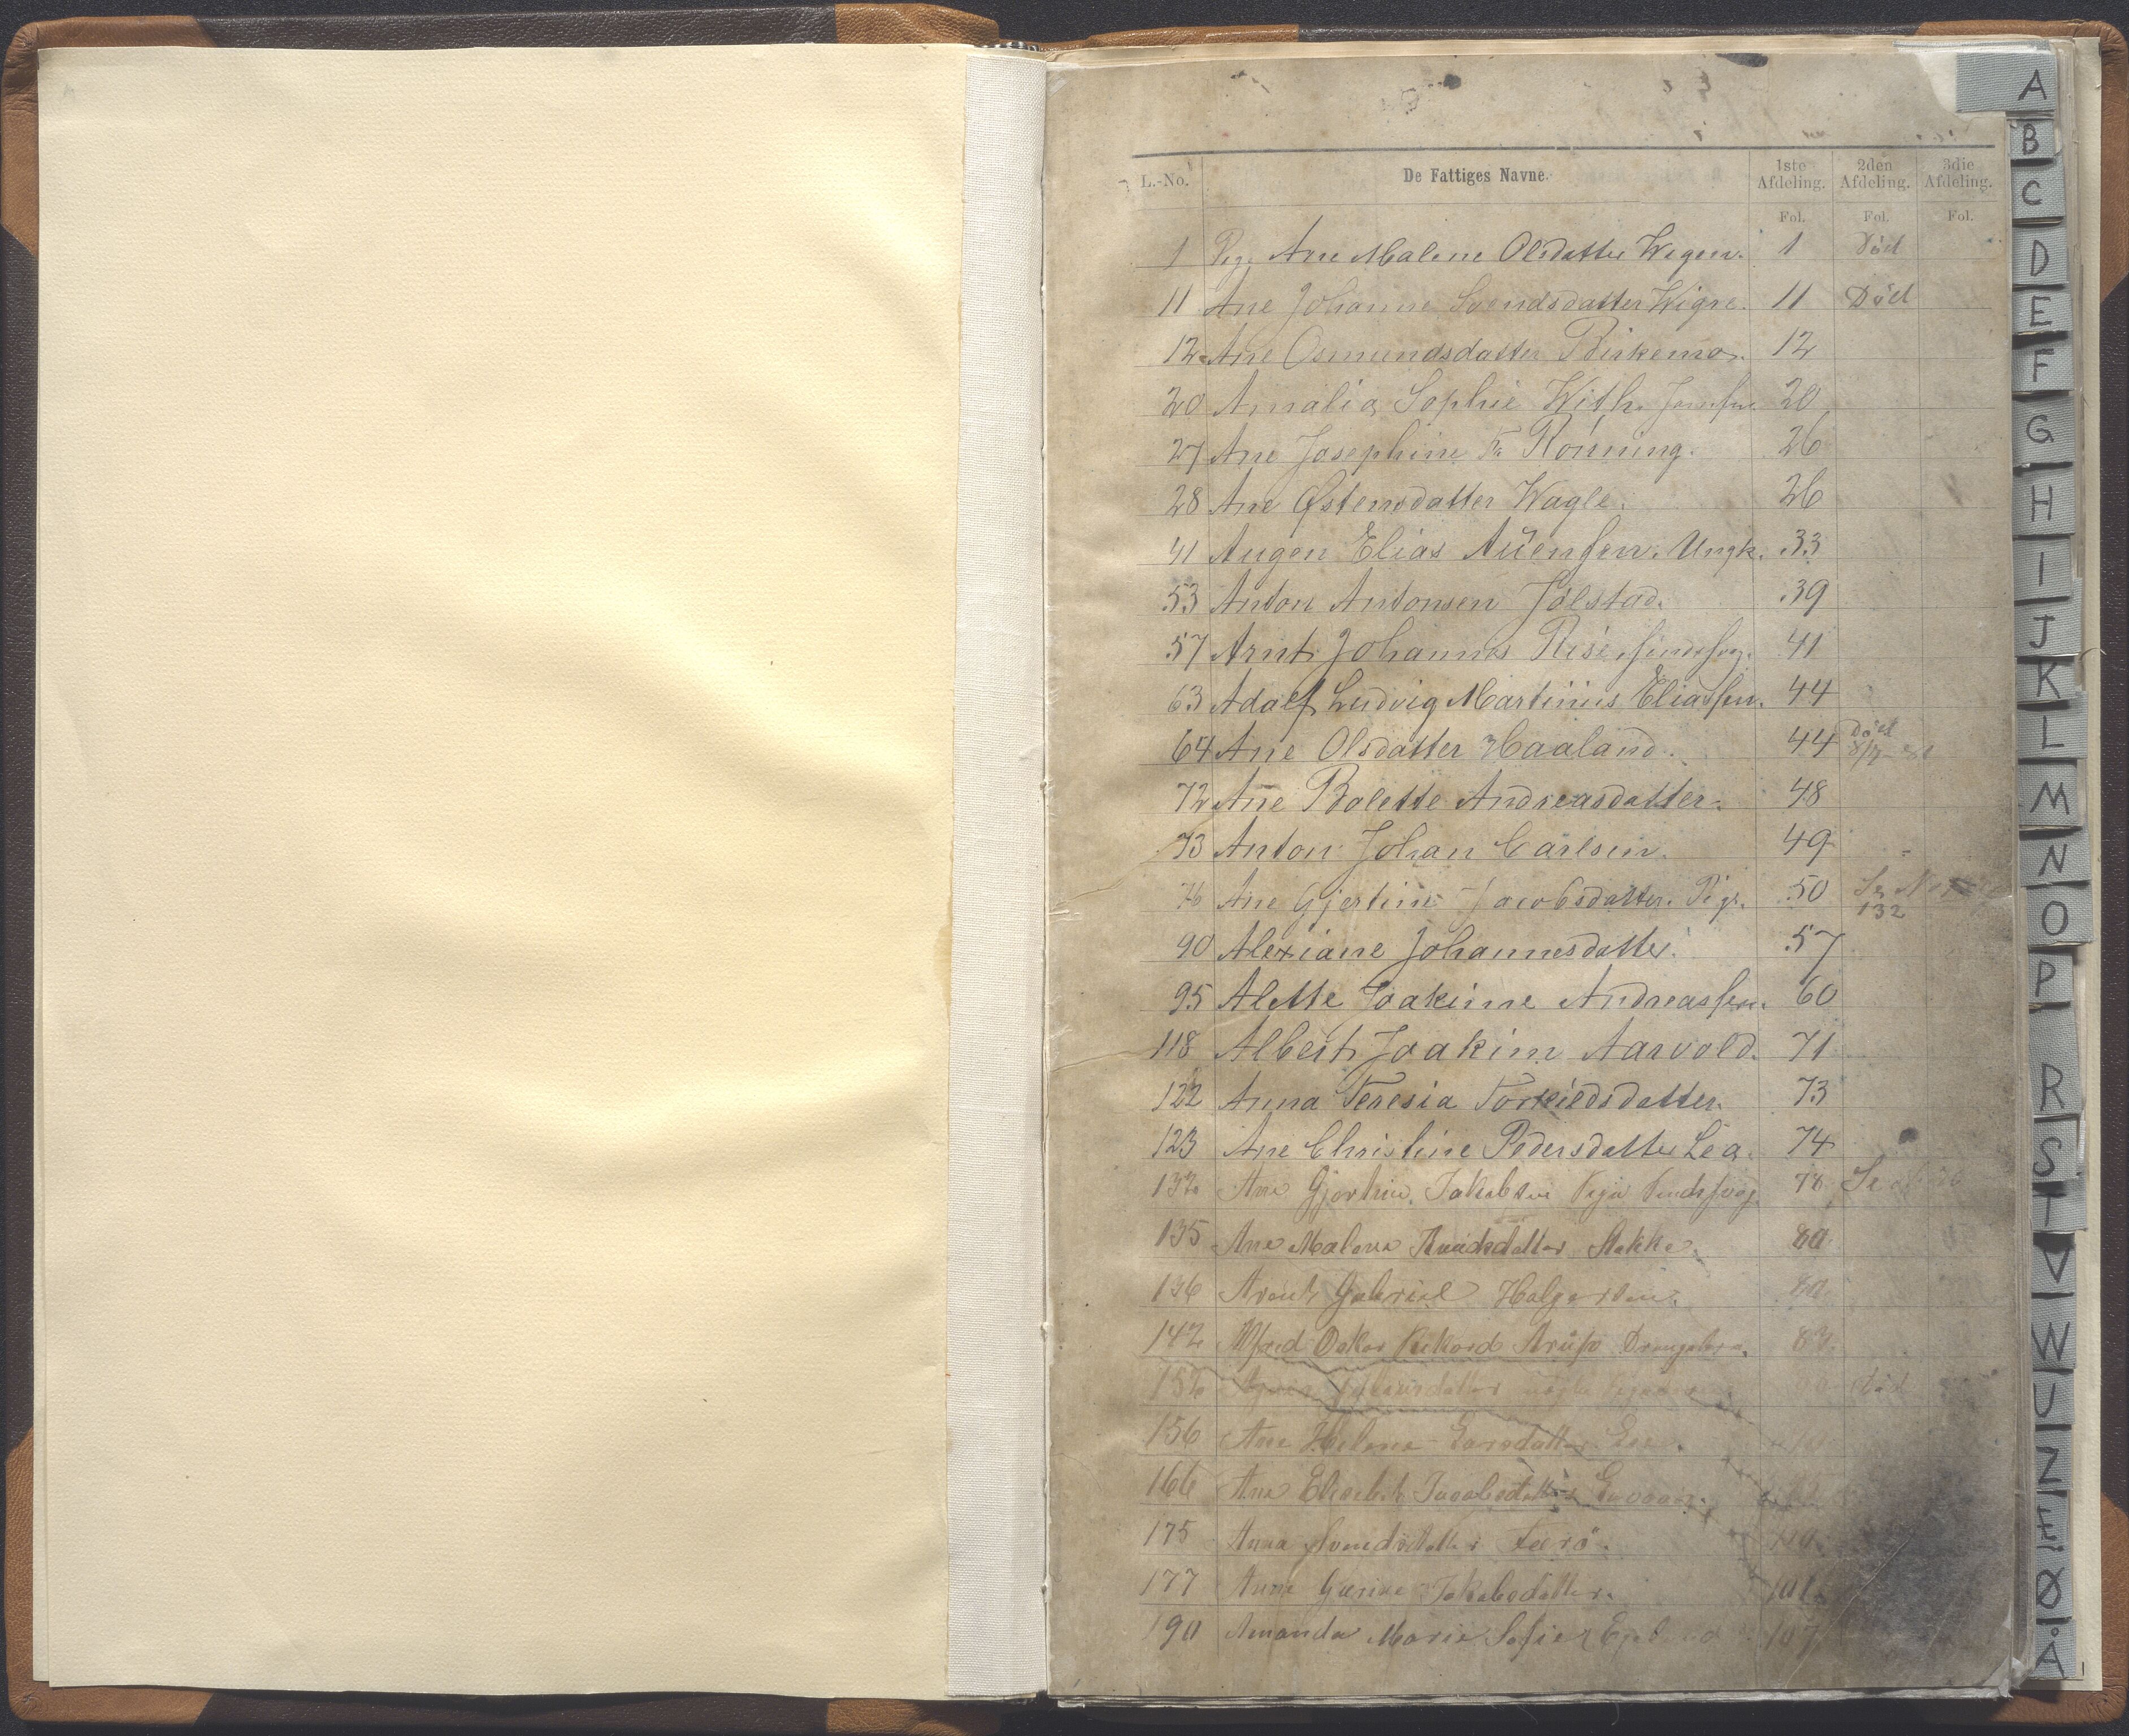 L.-No. De Fattiges Navne. 1ste Afdeling. 2den Afdeling. 3die Afdeling.
Fol. Fol. Fol.
1 Pige Ane Malene Olsdatter Wegen. 1 Død
11 Ane Johanne Svendsdatter Wigre. 11 Død
12 Ane Osmundsdatter Birkemo. 12
20 Amalia Sophie With. 20
27 Ane Josephine Rönning. 26
28 Ane Østensdatter Wagle. 26
41 Augen Elias Auensen. Ungk. 33
53 Anton Antonsen Jölstad. 39
57 Arnt Johannes Rise, sindssyg. 41
63 Adolf Ludvig Martinius Eliassen. 44
64 Ane Olsdatter Haaland. 44 Død
72 Ane Bolette Andreasdatter. 48
73 Anton Johan Carlsen. 49
76 Ane Gjertine Jacobsdatter. Pige. 50 Se No 132
90 Alexiane Johannesdatter. 57
95 Alette Joakime Andreassen. 60
118 Albert Joakim Aarvold. 71
122 Anna Teresia Torkildsdatter. 73
123 Ane Christine Pedersdatter Lea. 74
132 Ane Gjertine Jakobsen Pige Sindssyg. 78 Se
135 Ane Malene Knudsdatter Stakke. 80
136 Arent Gabriel Holgersen. 80
142 Alfred Oskar Rikard 83
152 Død
156 Ane Helene Larsdatter
166 Ane Elisabet Jacobsdatter
175 Anna Svendsdatter Færö.
177 Anne Garine Jakobsdatter. 101
190 Amanda Marie Sofie 107
A
B
C
D
E
F
G
H
I
J
K
L
M
N
O
P
R
S
T
V
W
U
Z
Æ
Ø
Å